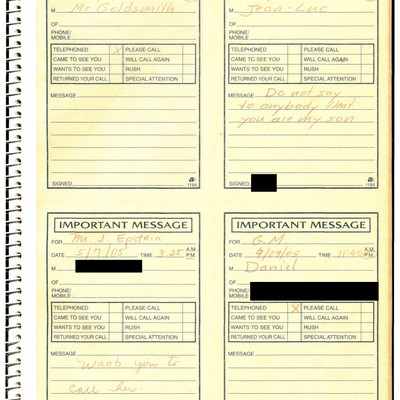 M Mr Goldsmith
OF
PHONE/
MOBILE
TELEPHONED X PLEASE CALL
CAME TO SEE YOU WILL CALL AGAIN
WANTS TO SEE YOU RUSH
RETURNED YOUR CALL SPECIAL ATTENTION
MESSAGE
SIGNED 1184
M Jean-Luc
OF
PHONE/
MOBILE
TELEPHONED PLEASE CALL
CAME TO SEE YOU WILL CALL AGAIN
WANTS TO SEE YOU RUSH
RETURNED YOUR CALL SPECIAL ATTENTION
MESSAGE Do not say
to anybody that
you are my son
SIGNED 1184
IMPORTANT MESSAGE
FOR Mr J Epstein
DATE 5/7/05 TIME 3.25 A.M.
P.M.
M
OF
PHONE/
MOBILE
TELEPHONED PLEASE CALL
CAME TO SEE YOU WILL CALL AGAIN
WANTS TO SEE YOU RUSH
RETURNED YOUR CALL SPECIAL ATTENTION
MESSAGE
Wants you to
call her.
IMPORTANT MESSAGE
FOR G.M.
DATE 4/29/05 TIME 11:40 A.M.
P.M.
M Daniel
OF
PHONE/
MOBILE
TELEPHONED X PLEASE CALL
CAME TO SEE YOU WILL CALL AGAIN
WANTS TO SEE YOU RUSH
RETURNED YOUR CALL SPECIAL ATTENTION
MESSAGE